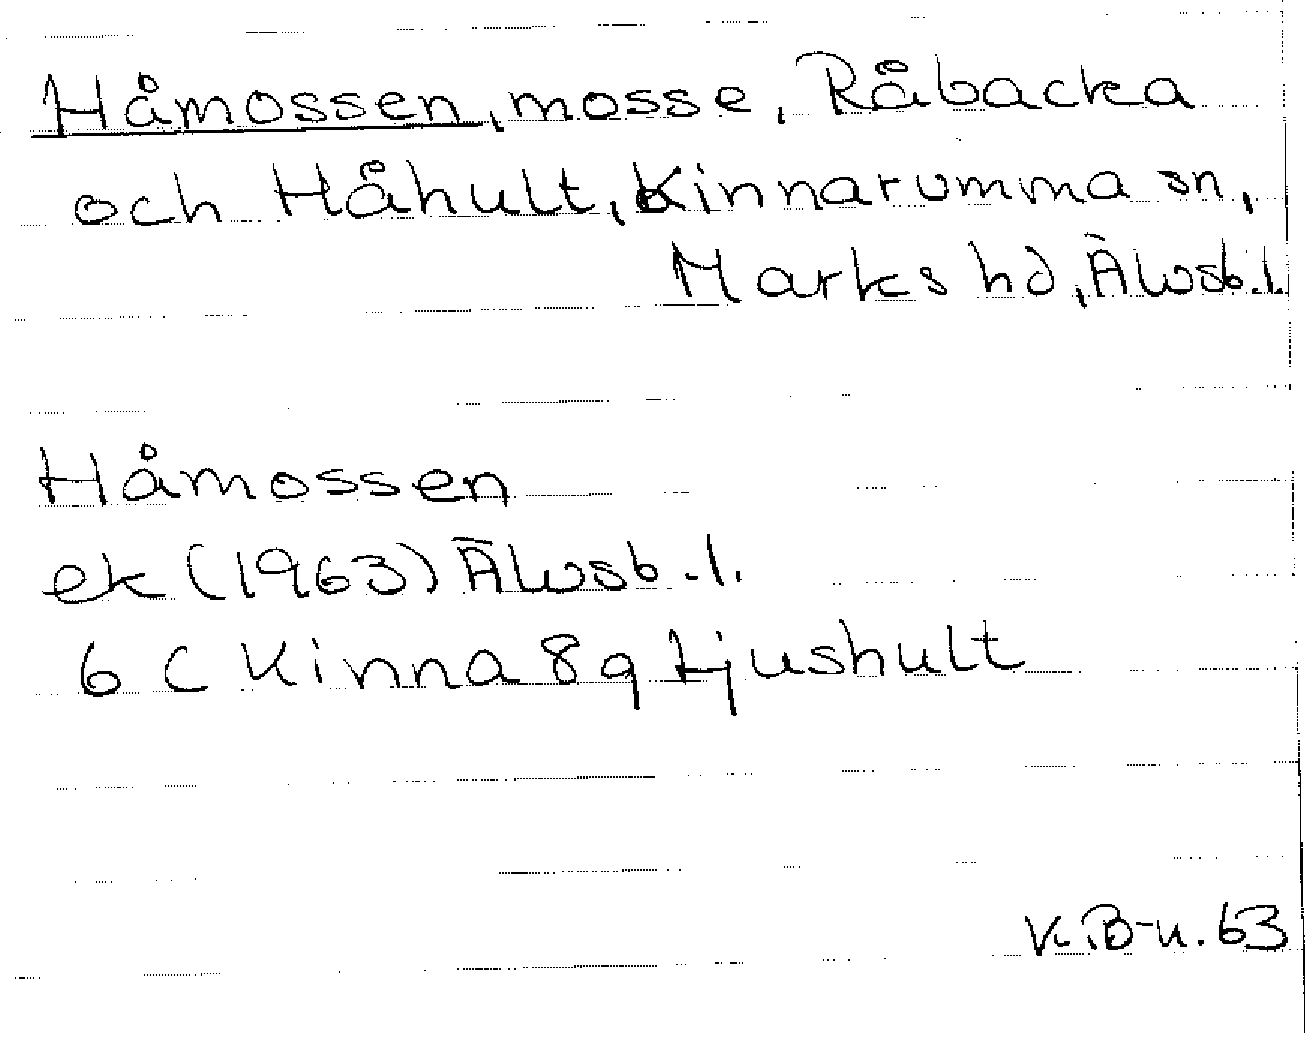 Håmossen, mosse, Råbacka
och Håhult, Kinnarumma sn,
Marks hd, Älvsb.l.
Håmossen
ek (1963) Älvsb.l.
6 C Kinna 8 g Ljushult
K. B-n. 63